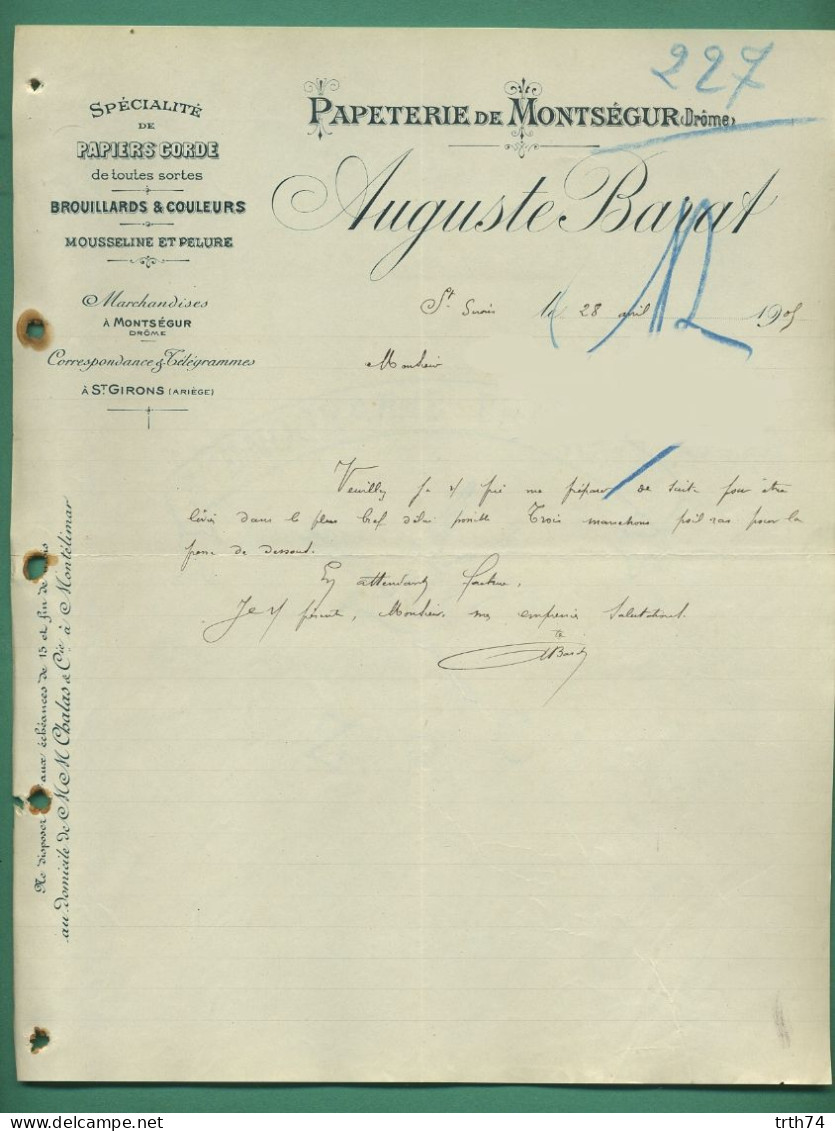 227
PAPETERIE DE MONTSÉGUR (Drôme)
Auguste Barat
SPÉCIALITÉ
DE
PAPIERS CORDE
de toutes sortes
BROUILLARDS & COULEURS
MOUSSELINE ET PELURE
Marchandises
À MONTSÉGUR
DRÔME
Correspondance & Télégrammes
À ST GIRONS (ARIÈGE)
St Girons le 28 avril 1905
Monsieur
Veuillez je v prie me préparer de suite pour être
livrés dans le plus bref délai possible Trois manchons poil ras pour la
presse de dessous.
En attendant facture,
Je v présente, Monsieur, mes empressées Salutations.
ABarat
Ne disposer aux échéances de 15 et fin de
au domicile de MM Chalas & Cie à Montélimar
trth74